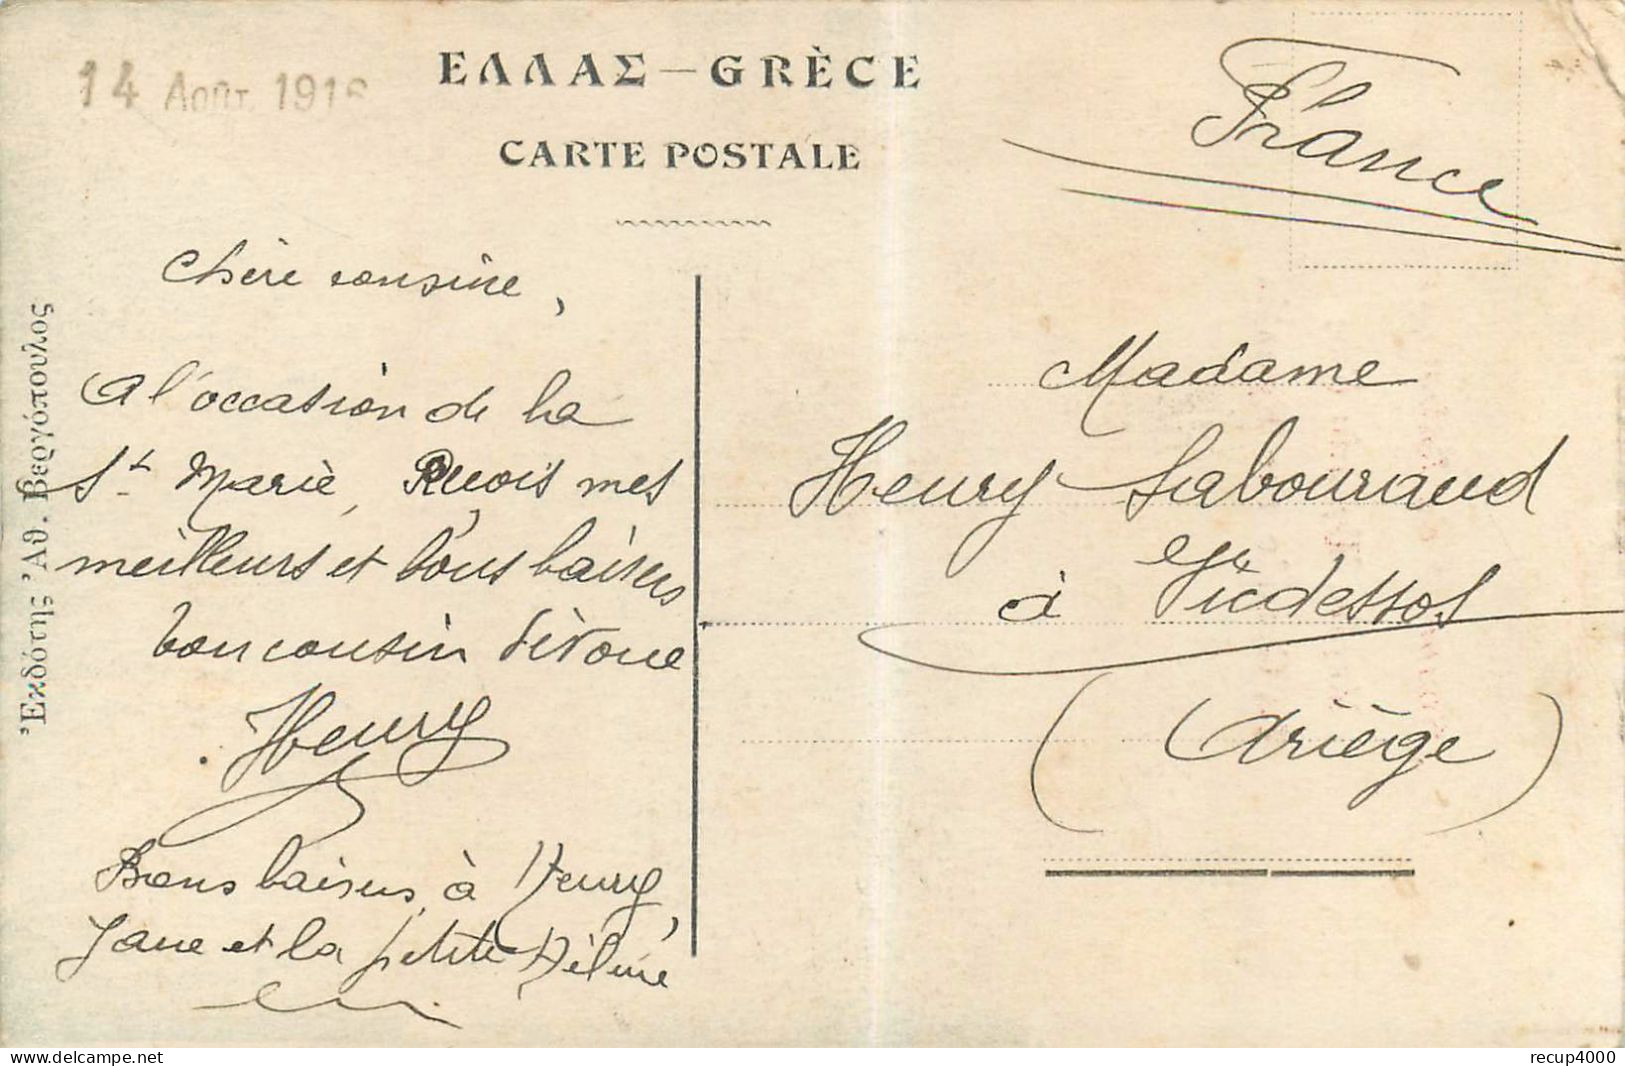 14 AOÛT 1916
ΕΛΛΑΣ — GRÈCE
CARTE POSTALE
France
Chère cousine,
A l'occasion de la
St Marie, Reçois mes
meilleurs et bons baisers
ton cousin dévoué
Henry
Bons baisers à Henry,
Jane et la petite Hélène
Madame
Henry Sabouraud
à Vicdessos
(Ariège)
Ἐκδότης Ἀθ. Βεργόπουλος
www.delcampe.net
recup4000